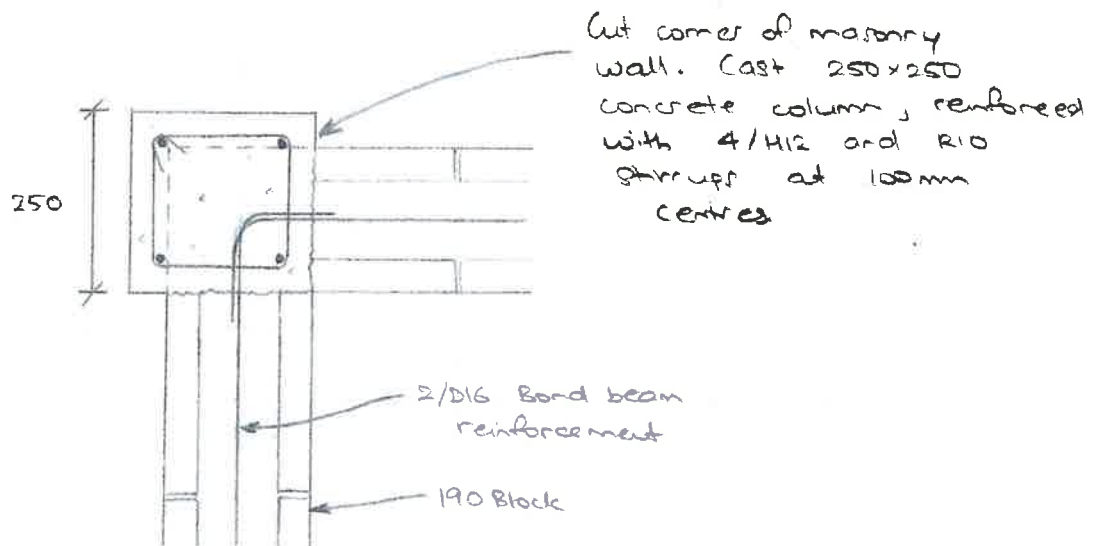 Cut corner of masonry
wall. Cast 250x250
concrete column, reinforced
with 4/H12 and R10
stirrups at 100mm
centres
250
2/D16 Bond beam
reinforcement
190 Block